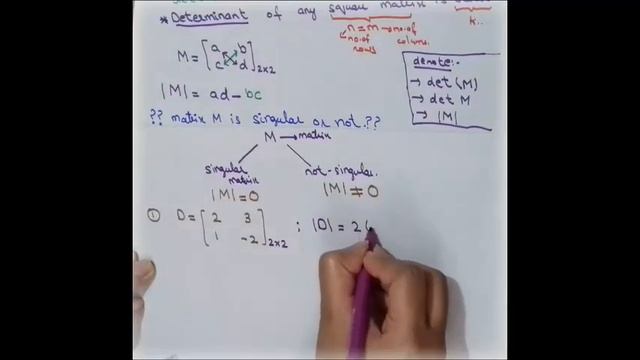 * Determinant of any square matrix is
n = m → no. of
no. of
rows
colums.
k..
M = [a b
c d] 2×2
|M| = ad - bc
denote:-
→ det (M)
→ det M
→ |M|
?? matrix M is singular or not. ??
M → matrix
singular
matrix
not-singular.
|M| = 0
|M| ≠ 0
① D = [2 3
1 -2] 2×2 ; |D| = 2(